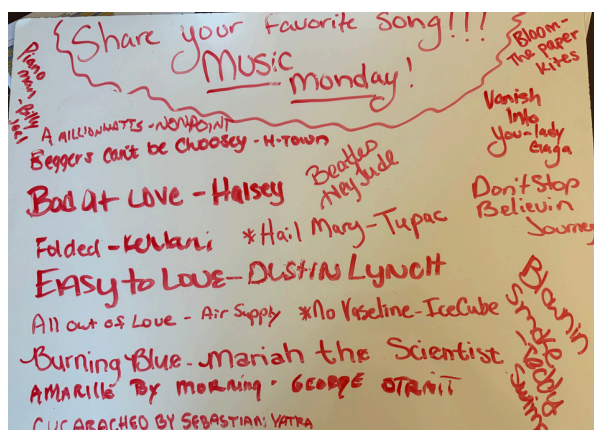 Share your favorite song!!!
Music Monday!
Piano man - Billy Joel
Bloom-
The paper
Kites
A MILLIONWATTS - NONPOINT
Beggers can't be choosey - H-TOWN
Vanish
Into
You-lady
Gaga
Beatles
Hey Jude
Bad at Love - Halsey
Don't Stop
Believin
Journey
Folded - Kehlani
*Hail Mary-Tupac
EASY to LOVE - DUSTIN LYNCH
All out of Love - Air Supply
*No Vaseline-IceCube
Blownin
Smoke
-Teddy
Swims
Burning Blue - Mariah the Scientist
AMARILLO BY MORNING - GEORGE STRAIT
CUCARACHED BY SEBASTIAN YATRA